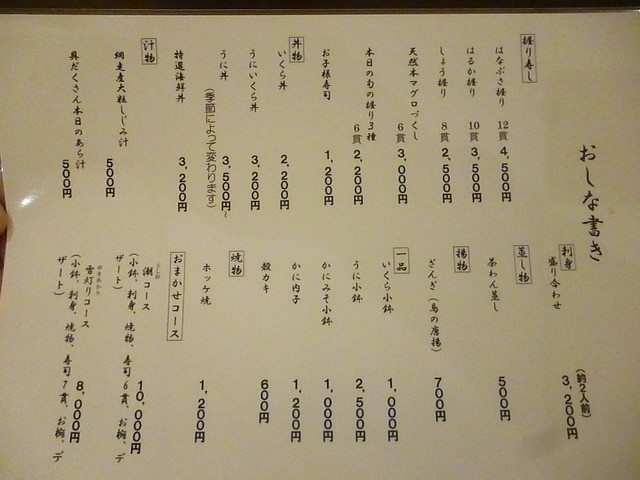 おしな書き
握り寿し
はなぶさ握り 12貫 4,500円
はるか握り 10貫 3,500円
しょう握り 8貫 2,500円
天然本マグロづくし 6貫 3,000円
本日の旬の握り3種 6貫 2,200円
お子様寿司 1,200円
丼物
いくら丼 2,200円
うにいくら丼 3,200円
うに丼 3,500円~
(季節によって変わります)
特選海鮮丼 3,200円
汁物
網走産大粒しじみ汁 500円
具だくさん本日のあら汁 500円
刺身
盛り合わせ (約2人前) 3,200円
蒸し物
茶わん蒸し 500円
揚物
ざんぎ(鳥の唐揚) 700円
一品
いくら小鉢 1,000円
うに小鉢 2,500円
かにみそ小鉢 1,000円
かに内子 1,200円
殻カキ 600円
焼物
ホッケ焼 1,200円
おまかせコース
潮コース 10,000円
(小鉢、刺身、焼物、寿司6貫、お椀、デ
ザート)
雪灯りコース 8,000円
(小鉢、刺身、焼物、寿司7貫、お椀、デ
ザート)